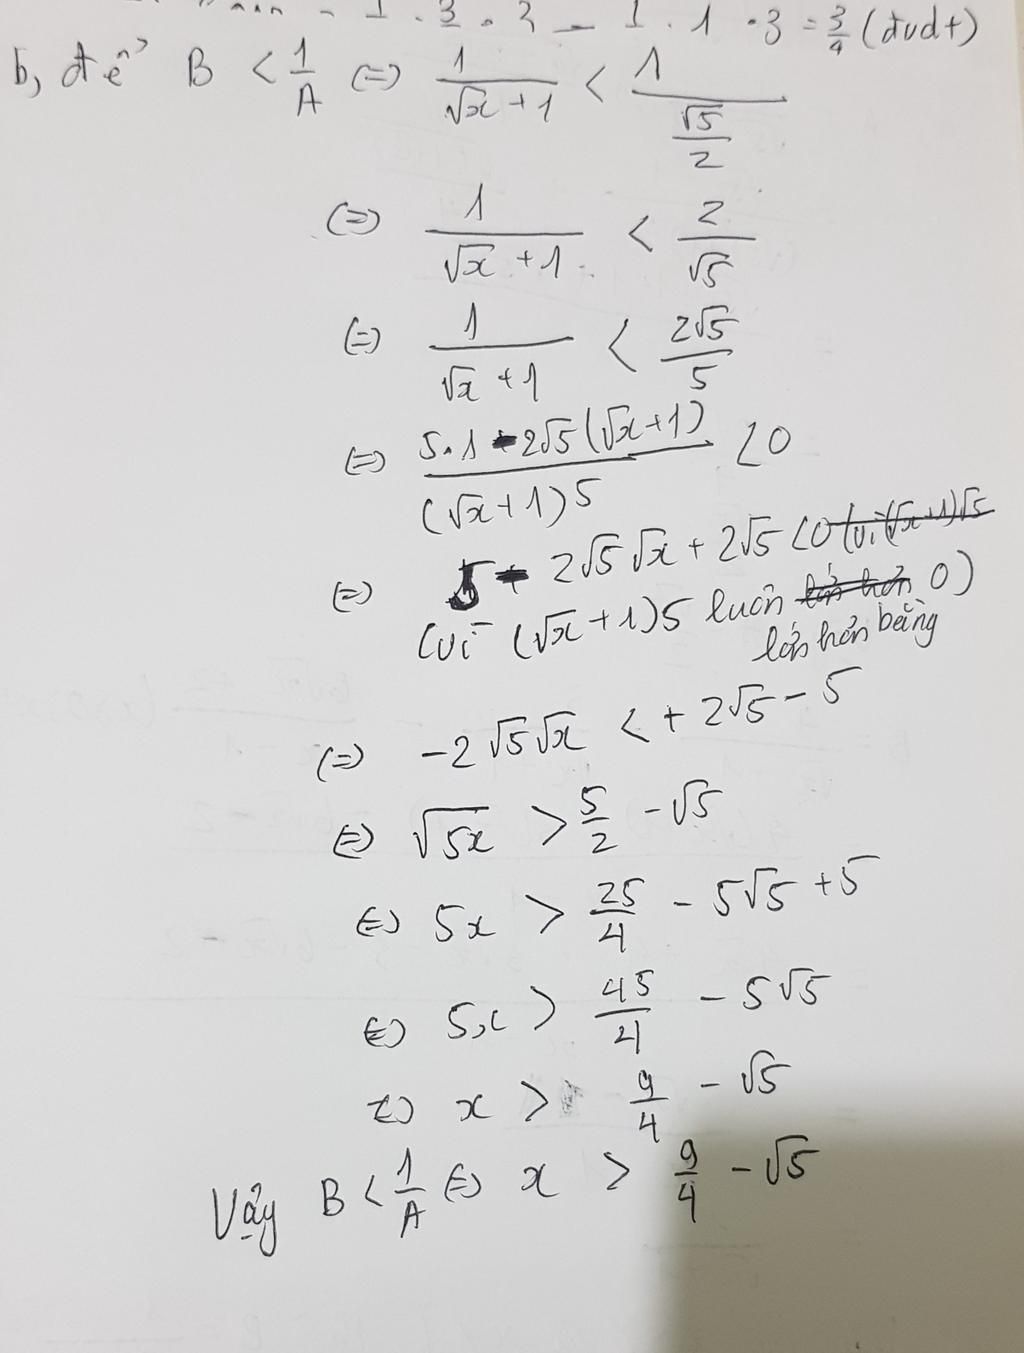 - 1 . 3 . 3 - 1 . 1 . 3 = 3/4 (đvdt)
b, để B < 1/A (=) 1/(√x + 1) < 1/(√5/2)
(=) 1/(√x + 1) < 2/√5
(=) 1/(√x + 1) < 2√5/5
(=) (5.1 - 2√5(√x+1))/((√x+1)5) < 0
(=) 5 - 2√5√x + 2√5 < 0
(vì (√x+1)5 luôn lớn hơn bằng 0)
(=) -2√5√x < + 2√5 - 5
(=) √5x > 5/2 - √5
(=) 5x > 25/4 - 5√5 + 5
(=) 5x > 45/4 - 5√5
(=) x > 9/4 - √5
Vậy B < 1/A (=) x > 9/4 - √5